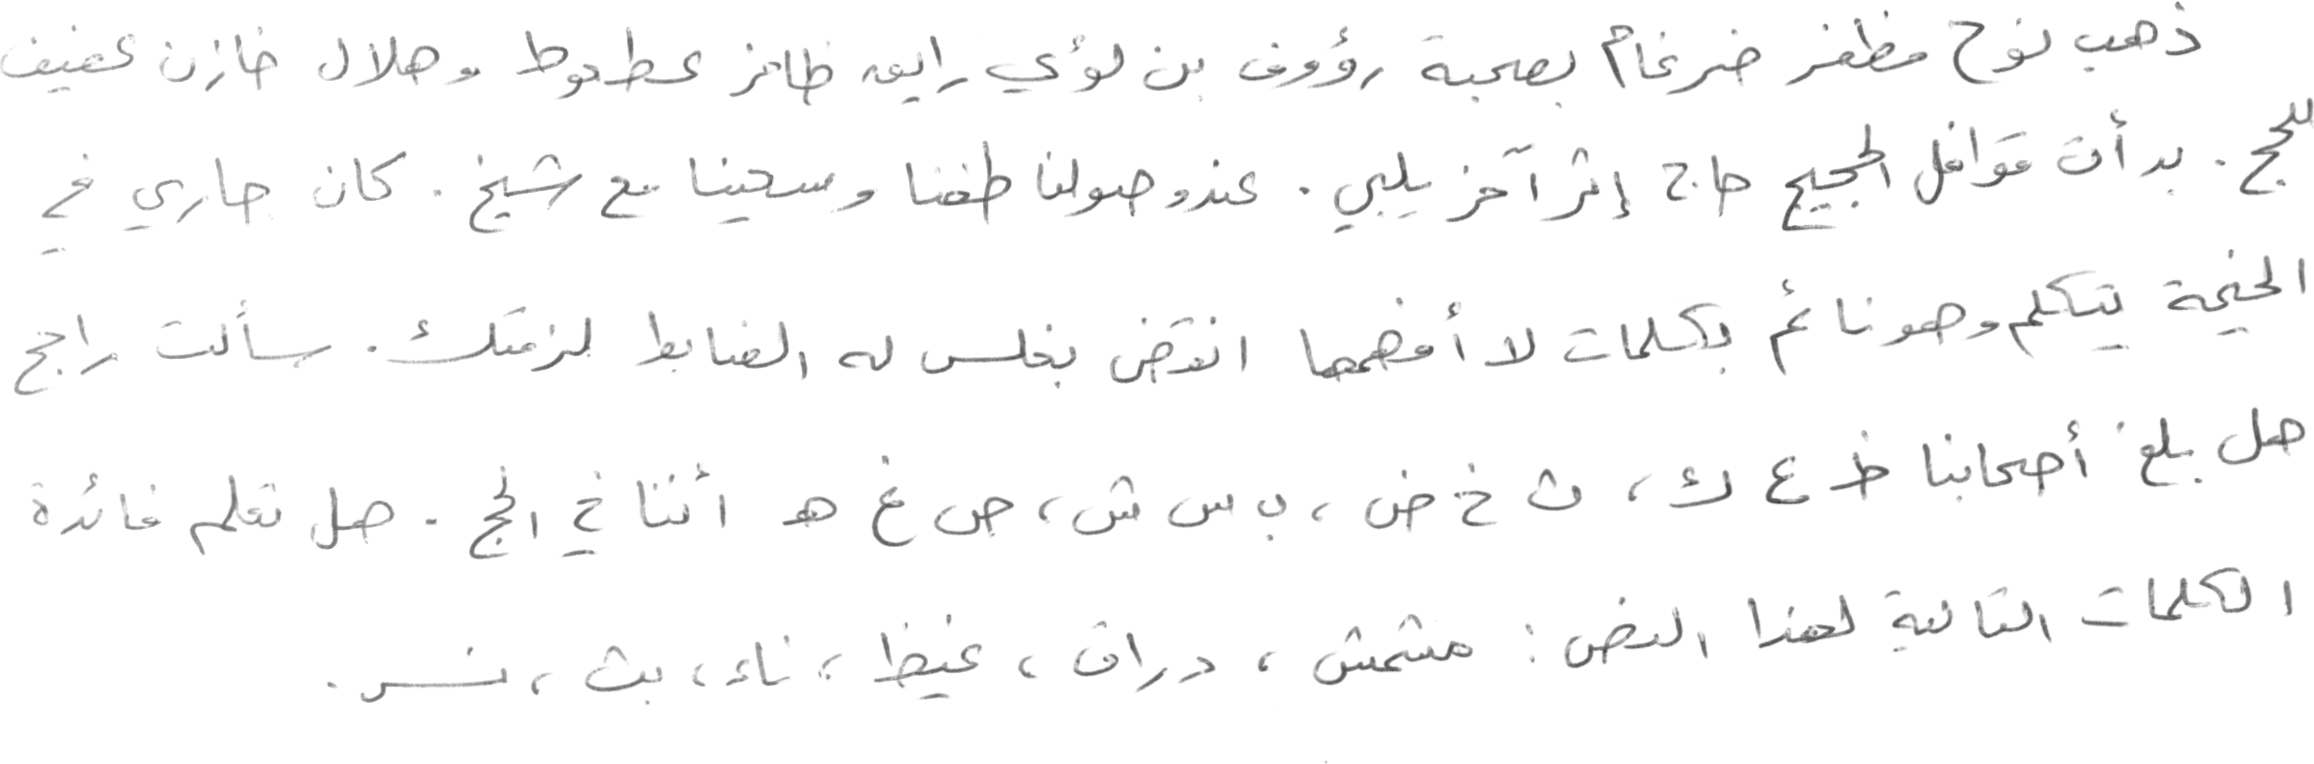 ذهب نوح مظفر ضرغام بصحبة رؤوف بن لؤي رايق ظافز عطعوط و هلال خازن عفيف
للحج . بدأت قوافل الحجيج حاج إثر آخر يلبي . عند وصولنا طفنا و سعينا مع شيخ . كان جاري في
الخيمة يتكلم وهو نائم بكلمات لا أفهمها انقض بغلس له الضابط بزمتك . سألت راجح
هل بلغ أصحابنا ظ ع ك ، ث خ ض ، ب س ش ، ص غ هـ أننا في الحج . هل تعلم فائدة
الكلمات التالية لهذا النص : مشمش ، دراق ، غيظ ، ناء ، بث ، نسر .